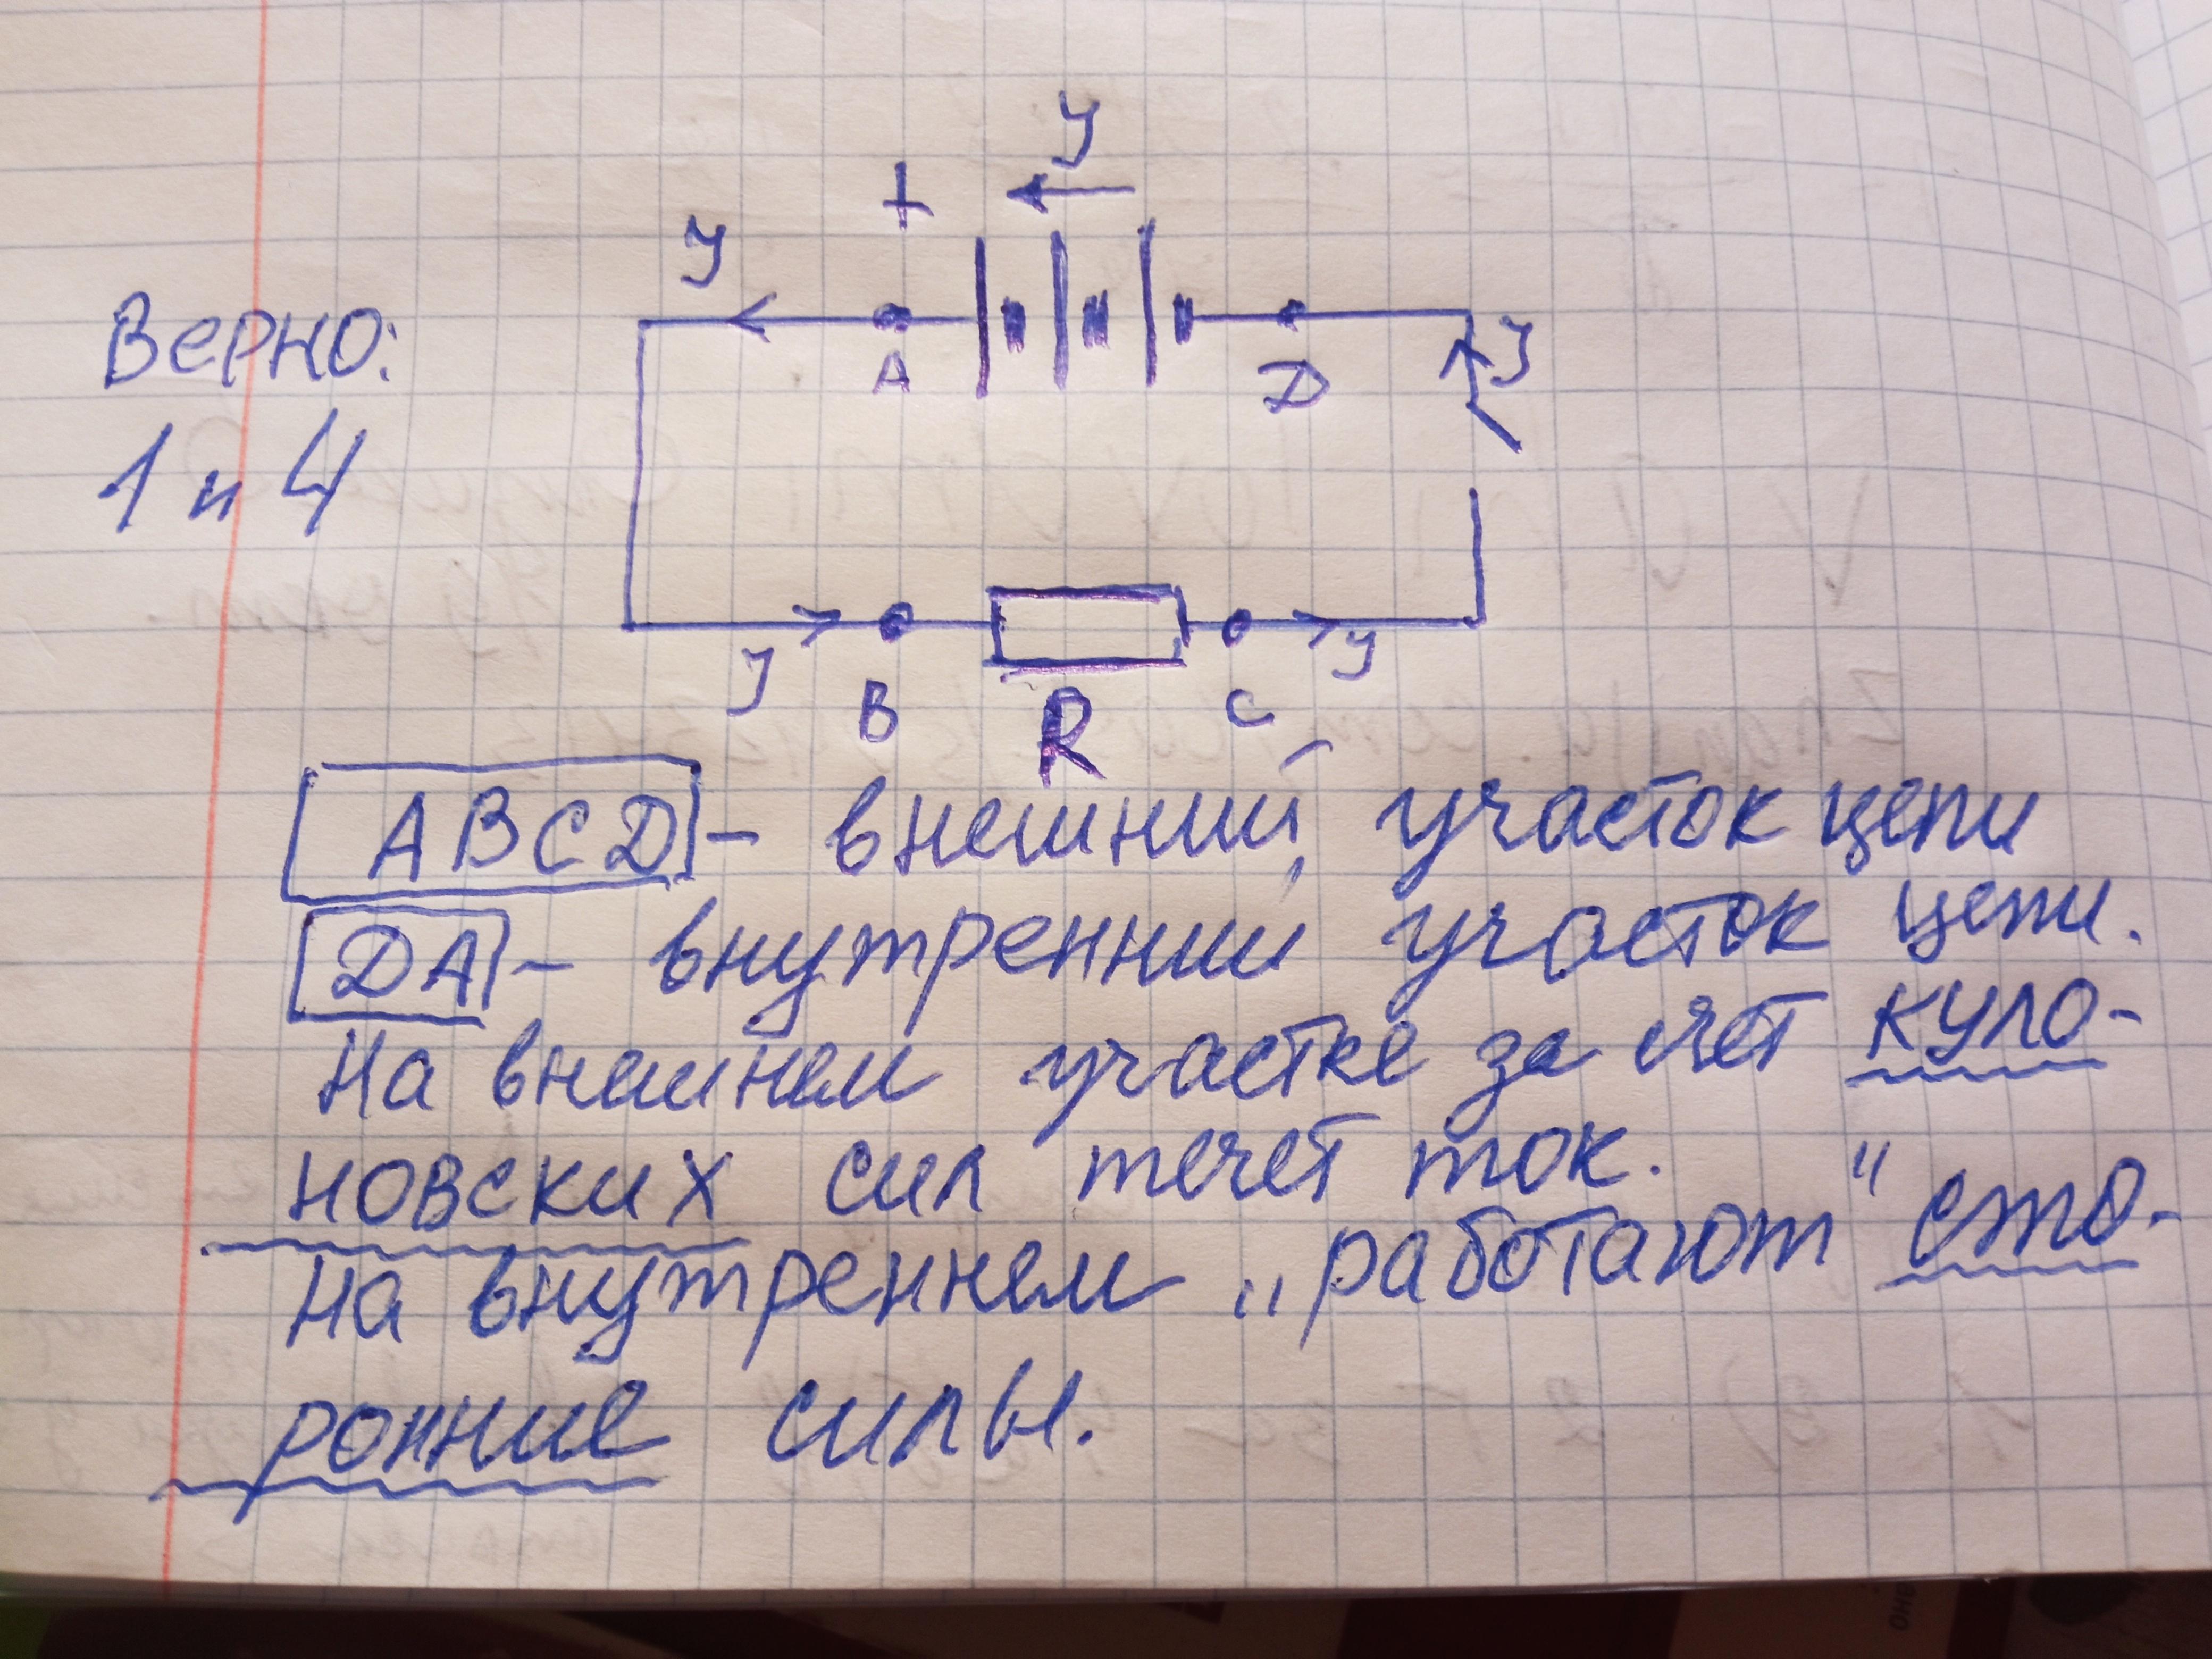 У
+
У
Верно:
А
D
У
1 и 4
У
В
R
С
У
АВСD - внешний участок цепи
DA - внутренний участок цепи.
На внешнем участке за счёт куло-
новских сил течёт ток.
На внутреннем „работают" сто-
ронние силы.